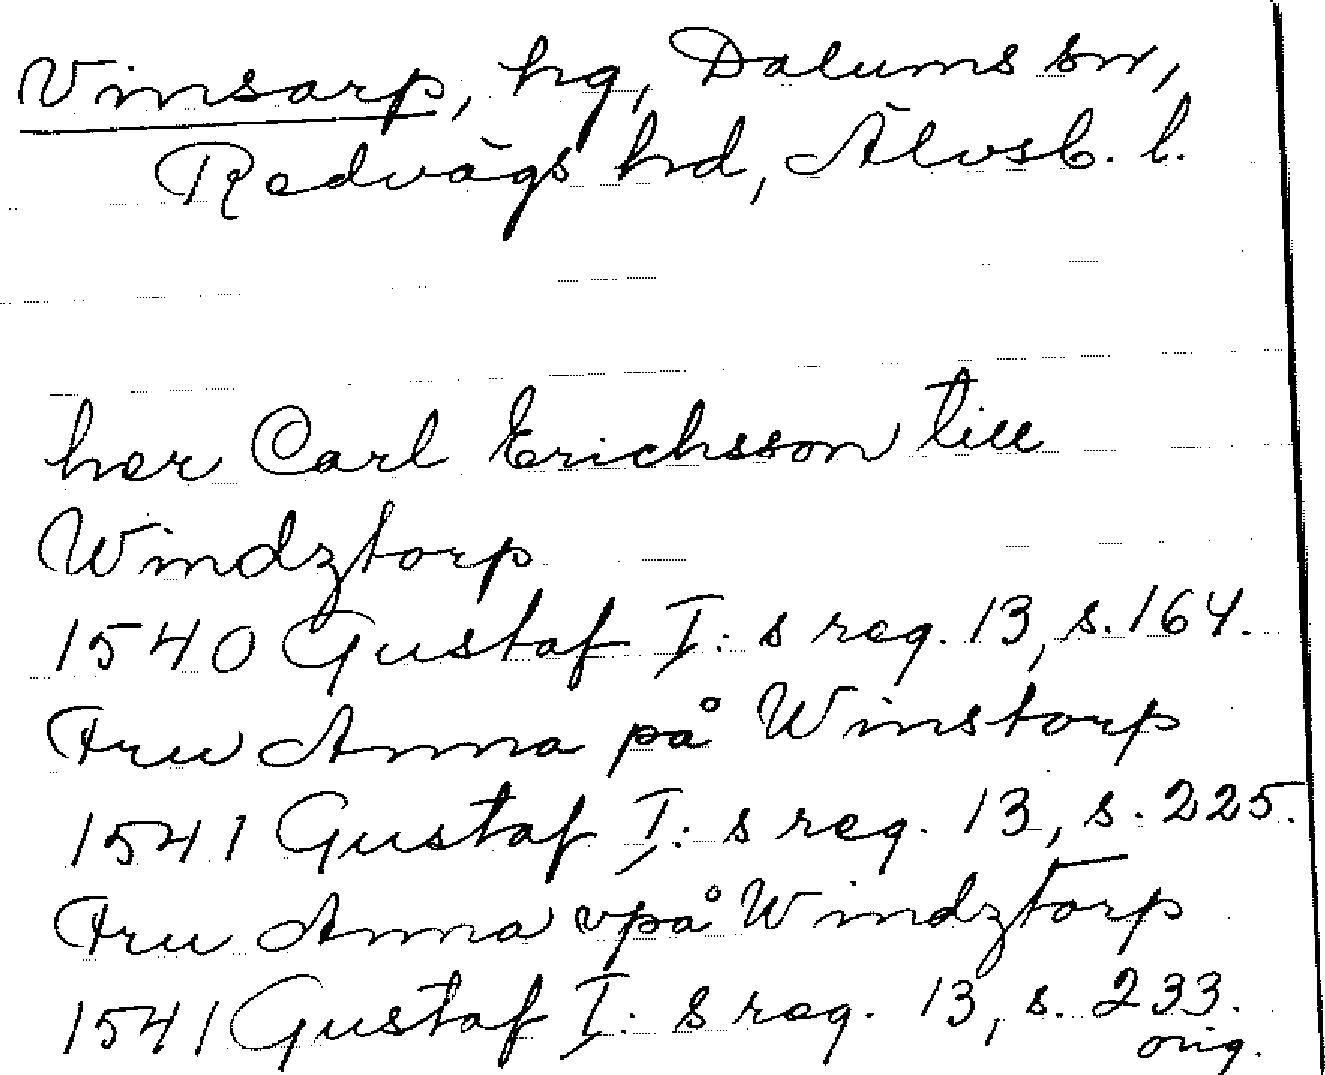 Vinsarp, hg, Dalums sn,
Redvägs hd, Älvsb. l.
her Carl Erichsson till
Windztorp
1540 Gustaf I:s reg. 13, s. 164.
Fru Anna på Winstorp
1541 Gustaf I:s reg. 13, s. 225.
Fru Anna vpå Windztorp
1541 Gustaf I:s reg. 13, s. 233.
orig.